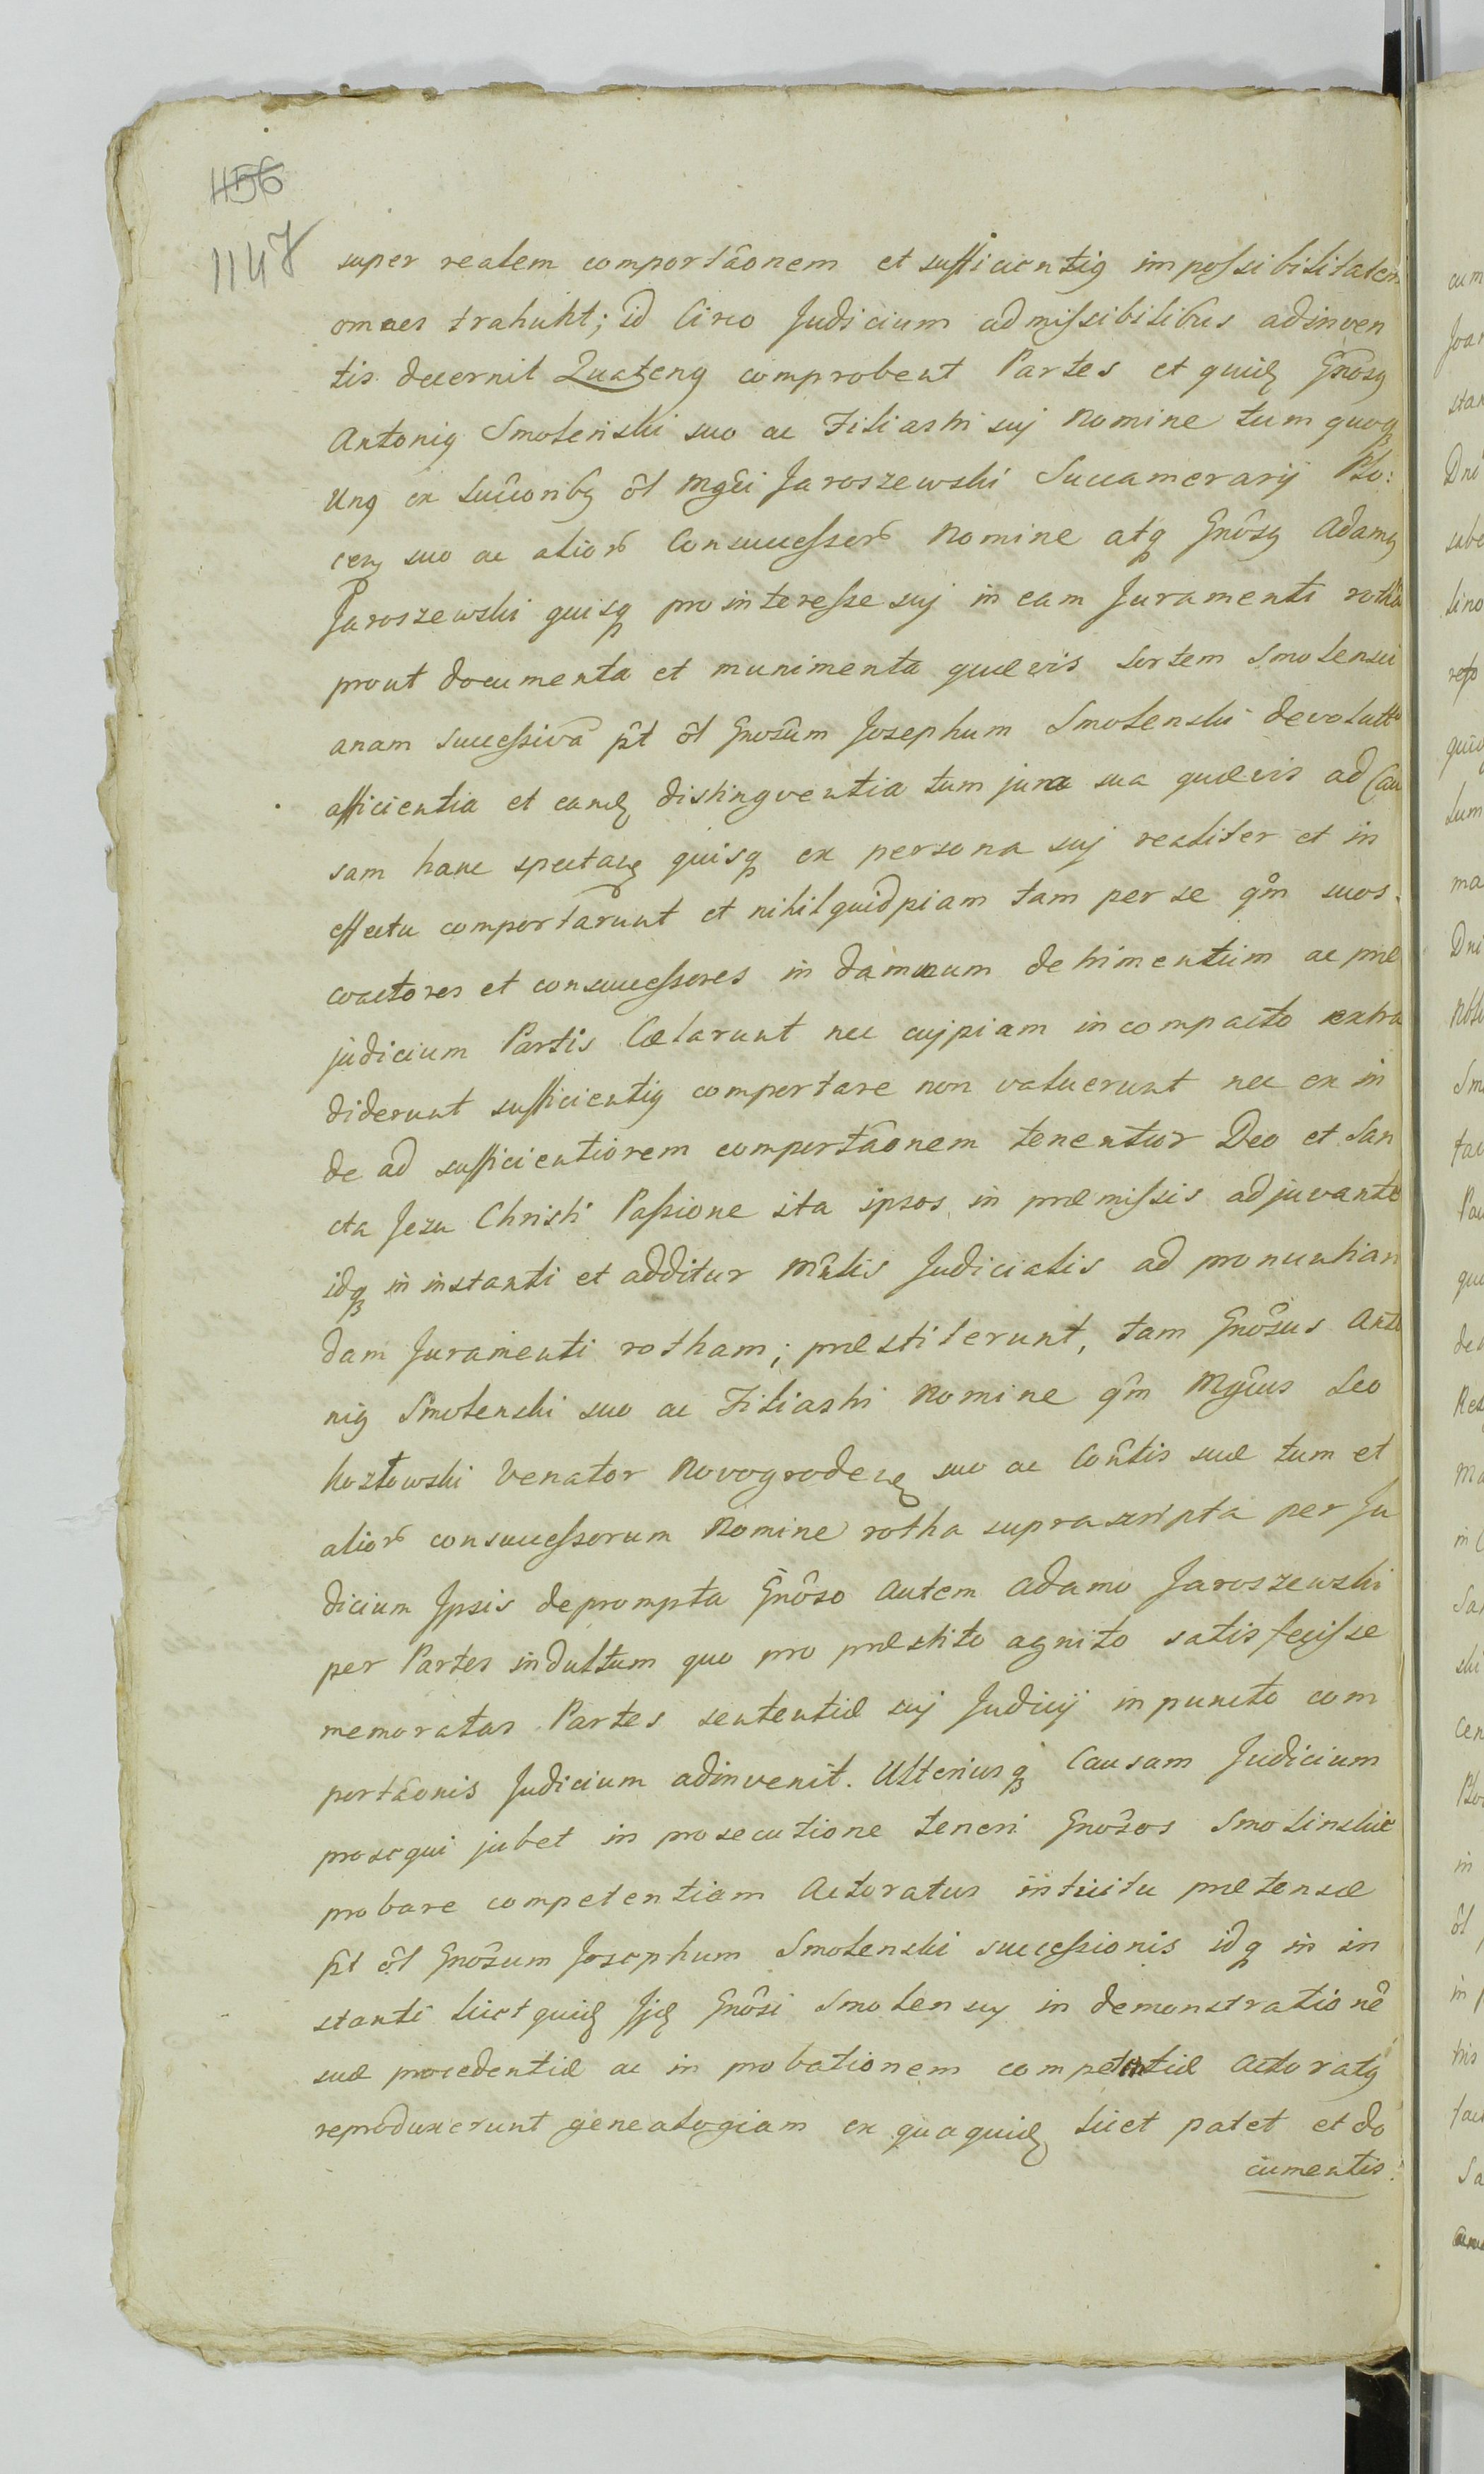 456
1147
super realem comportãonem et sufficientiq impoſsibilitatem
omnes trahunt; id Circo Judicium admiſsibilibus adinven
tis decernit Quatenq comprobent Partes et quidꝫ Gnôsq
Antoniq Smoleński suo ac Filiastri suj Nomine tum quoqꝫ
Unq ex Succôribꝫ ôl Mgêi Jaroszewski Succamerarij Plo:
cenꝫ suo ac alior̃ Consucceſsor̃ Nomine atqꝫ Gnôsq Adamq
Jaroszewski quisqꝫ pro intereſse suj in eam Juramenti rothã
prout documenta et munimenta quævis Sortem Smolensci
anam Succeſsivã pt̂ ôl Gnosûm Josephum Smolenski devolutã
afficientia et eandꝫ distingventia tum jura sua quævis ad Cau
sam hanc spectanꝫ quisqꝫ ex persona suj realiter et in
effectu comportarunt et nihil quidpiam tam per se qm̂ suos
coactores et consucceſsores in damnum detrimentum ac præ
judicium Partis Cælarunt nec cujpiam in compacto extra
diderunt sufficientiq comportare non valuerunt nec ex in
de ad sufficientiorem comportãonem tenentur Deo et San
cta Jesu Christi Paſsione ita ipsos in præmiſsis adjuvante
idqꝫ in instanti et additur Mn̂lis Judicialis ad pronuntian
dam Juramenti rotham; præstiterunt, tam Gnôsus Anto
niq Smolenski suo ac Filiastri Nomine qm̂ Mgĉus Leo
Kozłowski Venator Novogrodenꝫ suo ac Con̂tis suæ tum et
alior̃ consucceſsorum Nomine rotha suprascripta per Ju
dicium Ipsis deprompta Gnôso autem Adamo Jaroszewski
per Partes indultum quo pro præstito agnito satisfeciſse
memoratas Partes sententiæ suj Judicij in puncto com
portãonis Judicium adinvenit. Ulteriusqꝫ Causam Judicium
prosequi jubet in prosecutione teneri Gnôsos Smolinskie
probare competentiam Actoratus intuitu prætensæ
pt̂ ôl Gnôsum Josephum Smolenski succeſsionis idqꝫ in in
stanti licet quidꝫ Ijdꝫ Gnôsi Smolenscy in demonstrationê
suæ procedentiæ ac in probationem competentiæ Actoratq
reproduxerunt genealogiam ex qua quidꝫ licet patet et do
cumentis.